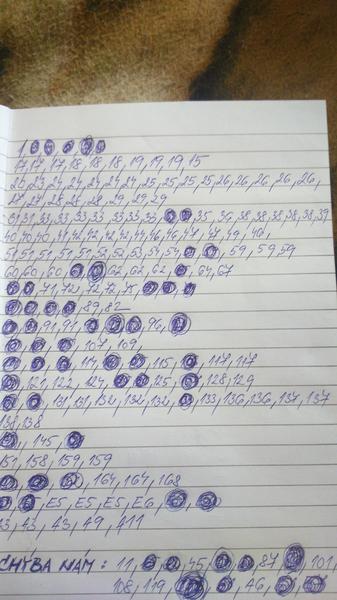 1,
17, 17, 17, 18, 18, 18, 19, 19, 19, 15
23, 23, 24, 24, 24, 24, 25, 25, 25, 25, 26, 26, 26, 26, 26,
27, 27, 28, 28, 28, 29, 29, 29
31, 31, 33, 33, 33, 33, 33, 33, 35, 36, 38, 38, 38, 38, 39
40, 40, 40, 41, 42, 42, 42, 44, 46, 46, 47, 47, 49, 401
51, 51, 51, 51, 51, 52, 52, 53, 54, 54, 59, 59, 59
60, 60, 60, 62, 62, 62, 64, 67
71, 72, 72, 72, 75,
89, 82
91, 91, 96,
107, 109,
114, 115, 117, 117
121, 122, 124, 125, 128, 129
131, 131, 132, 132, 132, 133, 136, 136, 137, 137
138, 138
145,
151, 158, 159, 159
167, 167, 168
E5, E5, E5, E6
43, 43, 43, 49, 411
CHÝBA NÁM: 11, 45, 87, 101,
108, 119, 46,